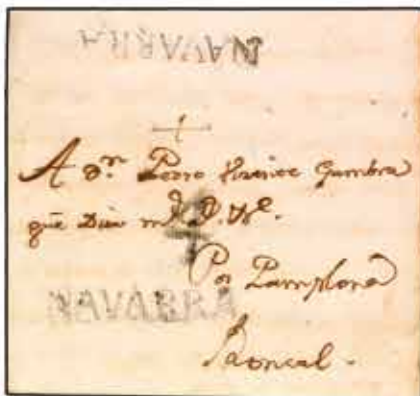 NAVARRA
A Dn. Pedro Gambra
que Dios
4
Por Pamplona
NAVARRA
Roncal.